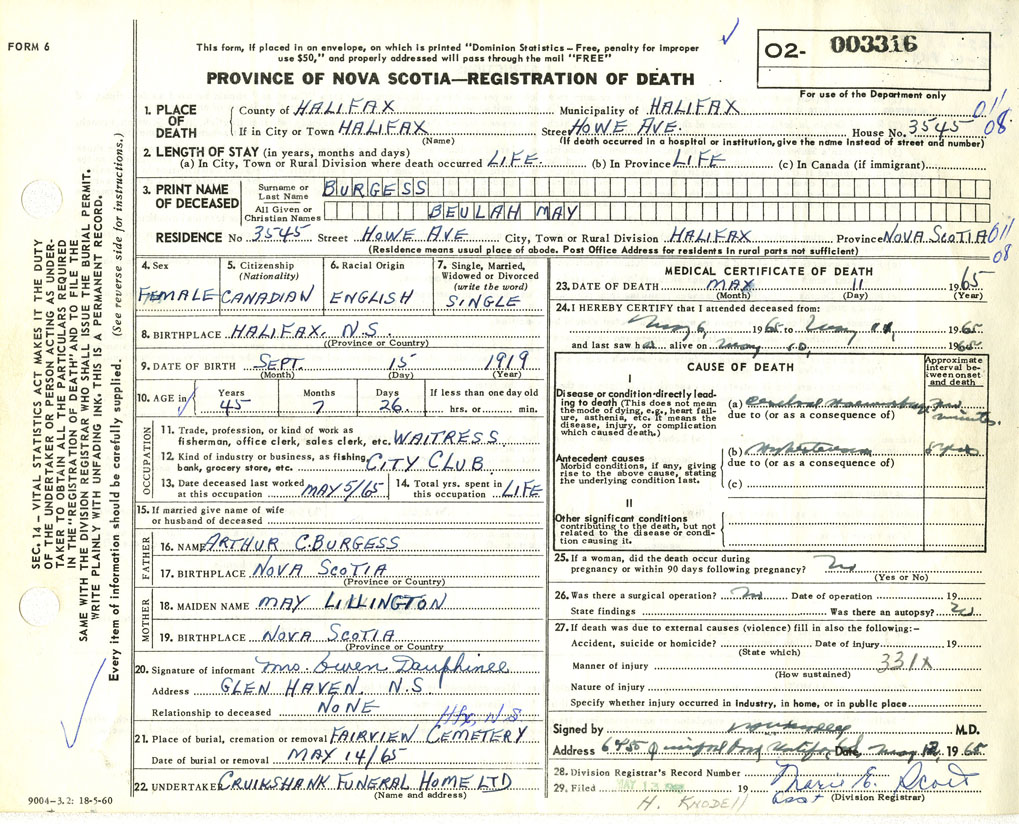 FORM 6
This form, if placed in an envelope, on which is printed "Dominion Statistics – Free, penalty for improper
use $50," and properly addressed will pass through the mail "FREE"
PROVINCE OF NOVA SCOTIA—REGISTRATION OF DEATH
O2- 003316
For use of the Department only
1. PLACE OF DEATH
County of HALIFAX Municipality of HALIFAX
If in City or Town HALIFAX Street HOWE AVE. House No. 3545
011
08
(Name) (If death occurred in a hospital or institution, give the name instead of street and number)
2. LENGTH OF STAY (in years, months and days)
(a) In City, Town or Rural Division where death occurred LIFE (b) In Province LIFE (c) In Canada (if immigrant)
3. PRINT NAME OF DECEASED
Surname or Last Name BURGESS
All Given or Christian Names BEULAH MAY
RESIDENCE No 3545 Street HOWE AVE City, Town or Rural Division HALIFAX Province NOVA SCOTIA
011
08
(Residence means usual place of abode. Post Office Address for residents in rural parts not sufficient)
4. Sex FEMALE
5. Citizenship (Nationality) CANADIAN
6. Racial Origin ENGLISH
7. Single, Married, Widowed or Divorced (write the word) SINGLE
8. BIRTHPLACE HALIFAX. N.S.
(Province or Country)
9. DATE OF BIRTH SEPT. 15 1919
(Month) (Day) (Year)
10. AGE in Years 45 Months 7 Days 26 If less than one day old hrs. or min.
OCCUPATION
11. Trade, profession, or kind of work as
fisherman, office clerk, sales clerk, etc. WAITRESS
12. Kind of industry or business, as fishing
bank, grocery store, etc. CITY CLUB
13. Date deceased last worked at this occupation MAY 5/65
14. Total yrs. spent in this occupation LIFE
15. If married give name of wife
or husband of deceased
FATHER
16. NAME ARTHUR C. BURGESS
17. BIRTHPLACE NOVA SCOTIA
(Province or Country)
MOTHER
18. MAIDEN NAME MAY LILLINGTON
19. BIRTHPLACE NOVA SCOTIA
(Province or Country)
20. Signature of informant Mrs. Owen Dauphinee
Address GLEN HAVEN. N.S
Relationship to deceased NONE
Hfx, N.S.
21. Place of burial, cremation or removal FAIRVIEW CEMETERY
Date of burial or removal MAY 14/65
22. UNDERTAKER CRUIKSHANK FUNERAL HOME LTD
(Name and address)
MEDICAL CERTIFICATE OF DEATH
23. DATE OF DEATH MAY 11 1965
(Month) (Day) (Year)
24. I HEREBY CERTIFY that I attended deceased from:
May 6, 1965 to May 11, 1965
and last saw her alive on May 10, 1965
CAUSE OF DEATH
Approximate interval between onset and death
I
Disease or condition directly leading to death (This does not mean the mode of dying, e.g., heart failure, asthenia, etc. It means the disease, injury, or complication which caused death.)
(a) Cerebral Haemorrhage minutes
due to (or as a consequence of)
Antecedent causes
Morbid conditions, if any, giving rise to the above cause, stating the underlying condition last.
(b) Hypertension
due to (or as a consequence of)
(c)
II
Other significant conditions
contributing to the death, but not related to the disease or condition causing it.
25. If a woman, did the death occur during
pregnancy or within 90 days following pregnancy? No
(Yes or No)
26. Was there a surgical operation? No Date of operation 19
State findings Was there an autopsy? No
27. If death was due to external causes (violence) fill in also the following:–
Accident, suicide or homicide? Date of injury 19
(State which)
Manner of injury 331X
(How sustained)
Nature of injury
Specify whether injury occurred in Industry, in home, or in public place
Signed by M.D.
Address 6455 Quinpool Road Halifax Date May 12, 1965
28. Division Registrar's Record Number
29. Filed MAY 13 19
Marie E. Scott
Asst (Division Registrar)
H. KNODELL
SEC. 14 – VITAL STATISTICS ACT MAKES IT THE DUTY
OF THE UNDERTAKER OR PERSON ACTING AS UNDER-
TAKER TO OBTAIN ALL THE PARTICULARS REQUIRED
IN THE "REGISTRATION OF DEATH" AND TO FILE THE
SAME WITH THE DIVISION REGISTRAR WHO SHALL ISSUE THE BURIAL PERMIT.
WRITE PLAINLY WITH UNFADING INK. THIS IS A PERMANENT RECORD.
Every item of information should be carefully supplied. (See reverse side for instructions.)
9004–3.2: 18-5-60